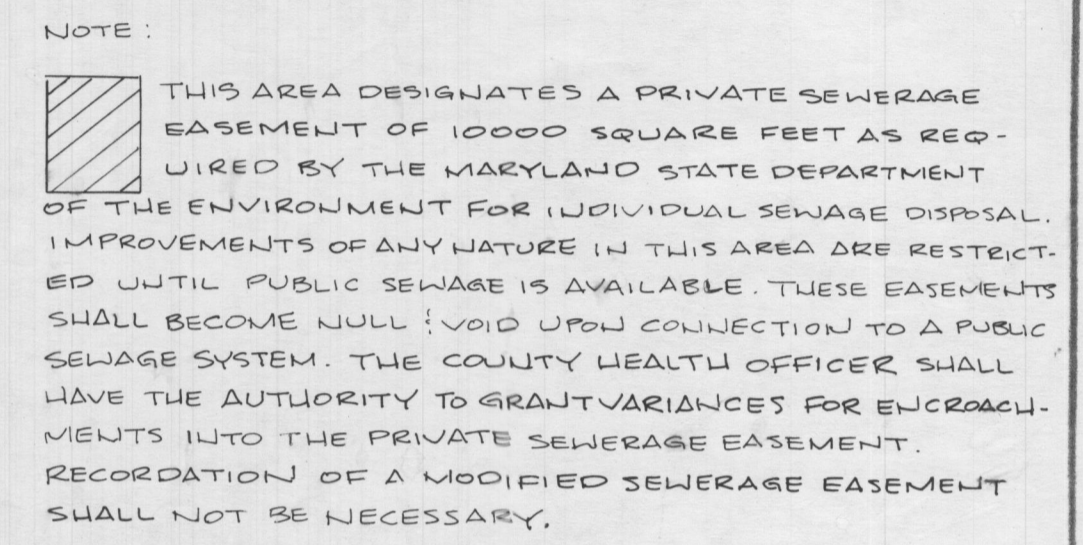 NOTE:
THIS AREA DESIGNATES A PRIVATE SEWERAGE
EASEMENT OF 10000 SQUARE FEET AS REQ-
UIRED BY THE MARYLAND STATE DEPARTMENT
OF THE ENVIRONMENT FOR INDIVIDUAL SEWAGE DISPOSAL.
IMPROVEMENTS OF ANY NATURE IN THIS AREA ARE RESTRICT-
ED UNTIL PUBLIC SEWAGE IS AVAILABLE. THESE EASEMENTS
SHALL BECOME NULL & VOID UPON CONNECTION TO A PUBLIC
SEWAGE SYSTEM. THE COUNTY HEALTH OFFICER SHALL
HAVE THE AUTHORITY TO GRANT VARIANCES FOR ENCROACH-
MENTS INTO THE PRIVATE SEWERAGE EASEMENT.
RECORDATION OF A MODIFIED SEWERAGE EASEMENT
SHALL NOT BE NECESSARY.